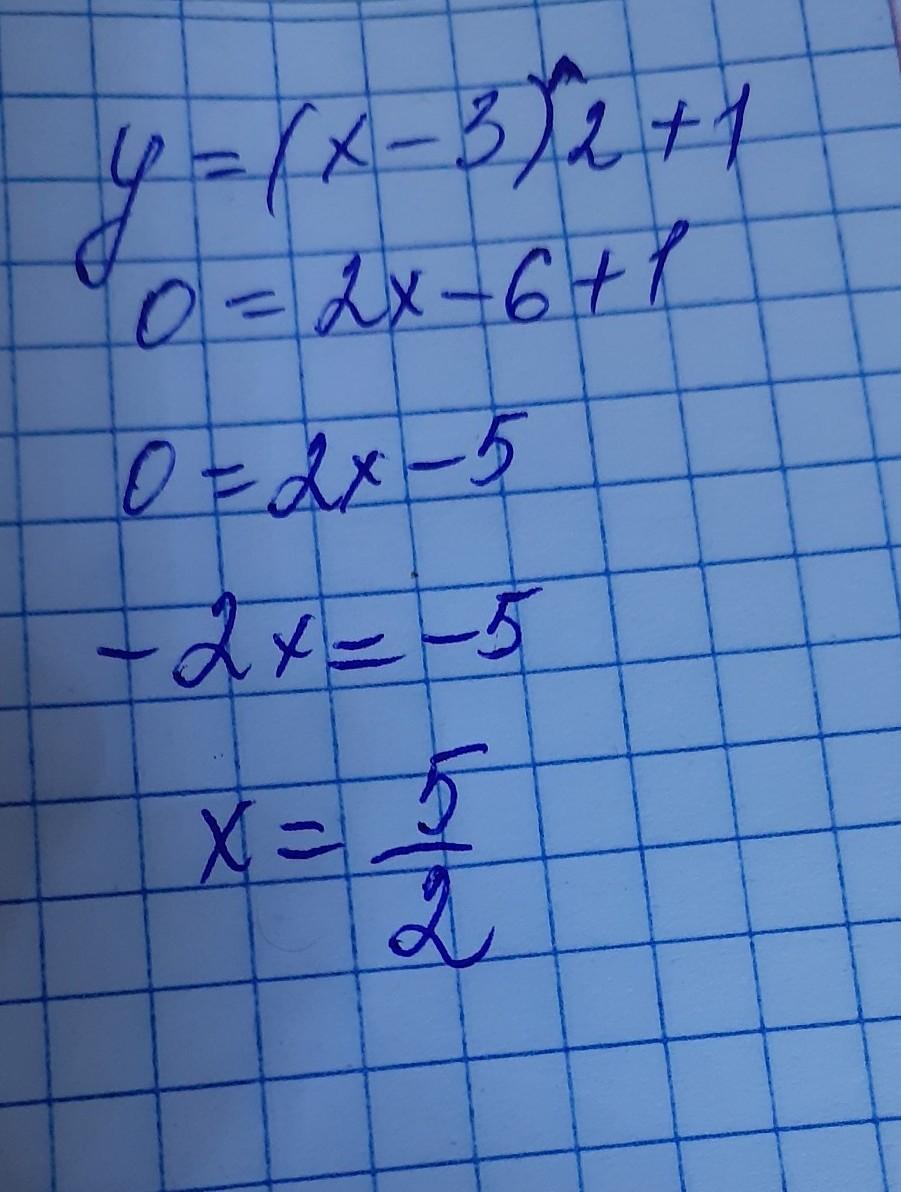 y = (x - 3)^2 + 1
0 = 2x - 6 + 1
0 = 2x - 5
- 2x = - 5
x = 5/2